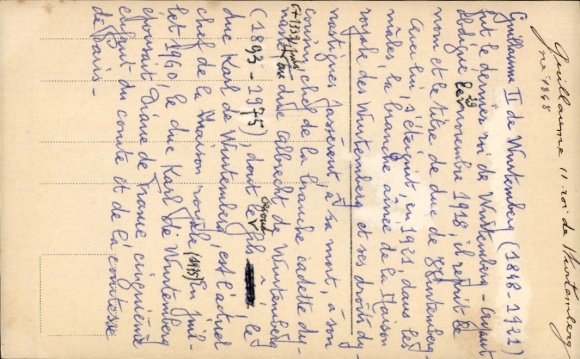 Guillaume II roi de Wurtemberg
né 1848
Guillaume II de Wurtemberg (1848-1921)
fut le dernier roi de Wurtemberg -
Abdiqué le 29 novembre 1918, il reprit le
nom et le titre de duc de Wurtemberg
Avec lui, s'éteignit en 1921, dans les
mâles, la branche aînée de la Maison
royale des Wurtemberg et ses droits dy-
nastiques passèrent, à sa mort, à son
cousin, chef de la branche cadette du-
cale, le duc Albrecht de Wurtemberg
(+1939)
(1893-1975), dont le second fils, le
duc Karl de Wurtemberg, est l'actuel
chef de la Maison royale (1975). En juil-
let 1960 le duc Karl de Wurtemberg
épousait Diane de France cinquième
enfant du comte et de la comtesse
de Paris -